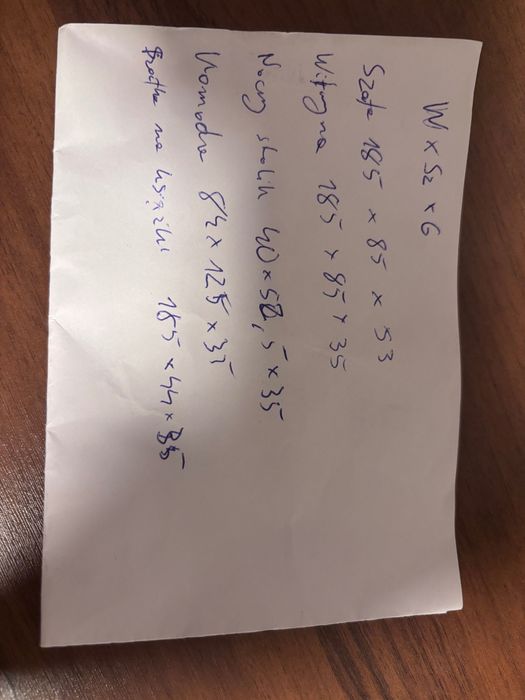 W x Sz x G
Szafa 185 x 85 x 53
Witryna 185 x 85 x 35
Nocny stolik 40 x 52,5 x 35
Komoda 84 x 125 x 35
na książki 185 x 44 x 35